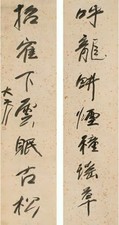 呼龍耕煙種瑤草
招雀下雲眠古松
大千